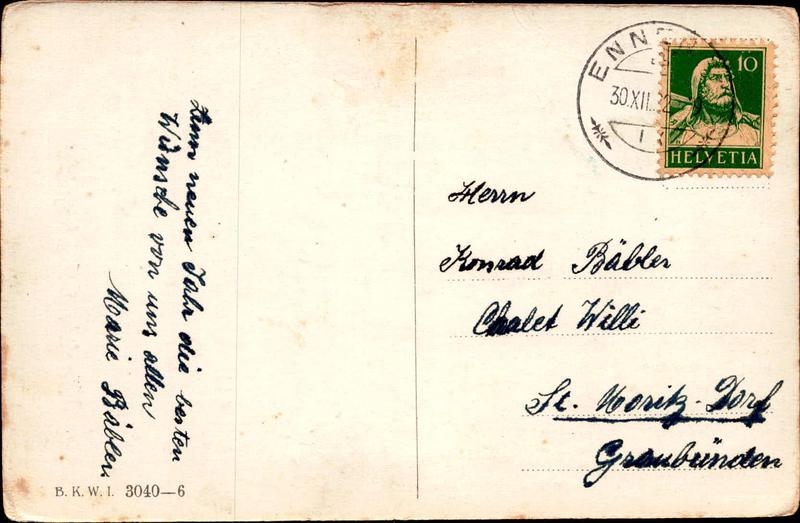 Zum neuen Jahr die besten
Wünsche von uns allen
Marie Bäbler.
B. K. W. I. 3040—6
30.XII.
10
HELVETIA
Herrn
Konrad Bäbler
Chalet Willi
St. Moritz-Dorf
Graubünden